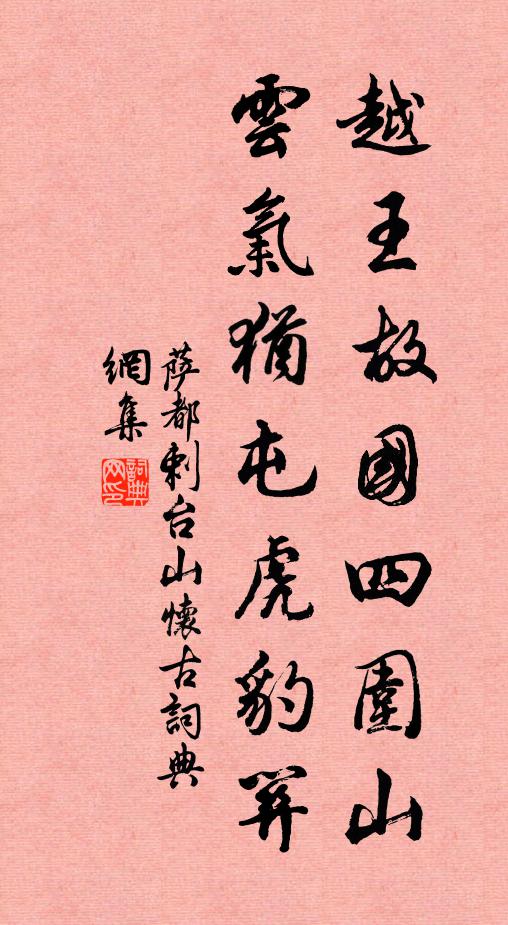 越王故國四圍山
雲氣猶屯虎豹關
薩都剌台山懷古詞典
網集
詞典網印